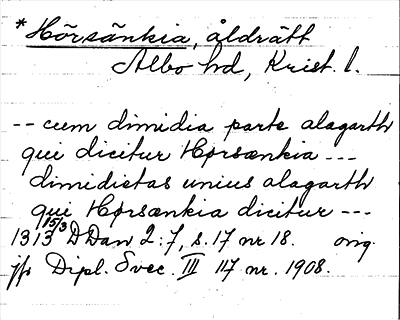 *Hörsänkia, åldrätt
Albo hd, Krist. l.
-- cum dimidia parte alagarth
qui dicitur Hørsænkia ---
dimidietas unius alagarth
qui Hørsænkia dicitur ---
1313 15/3 DDan 2:7, s.17 nr 18. orig.
jfr Dipl. Svec. III 117 nr. 1908.